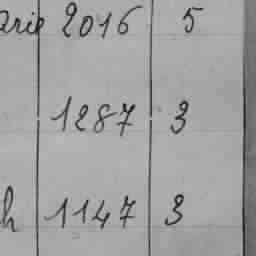 arie 2016 5
1287 3
h 1147 3